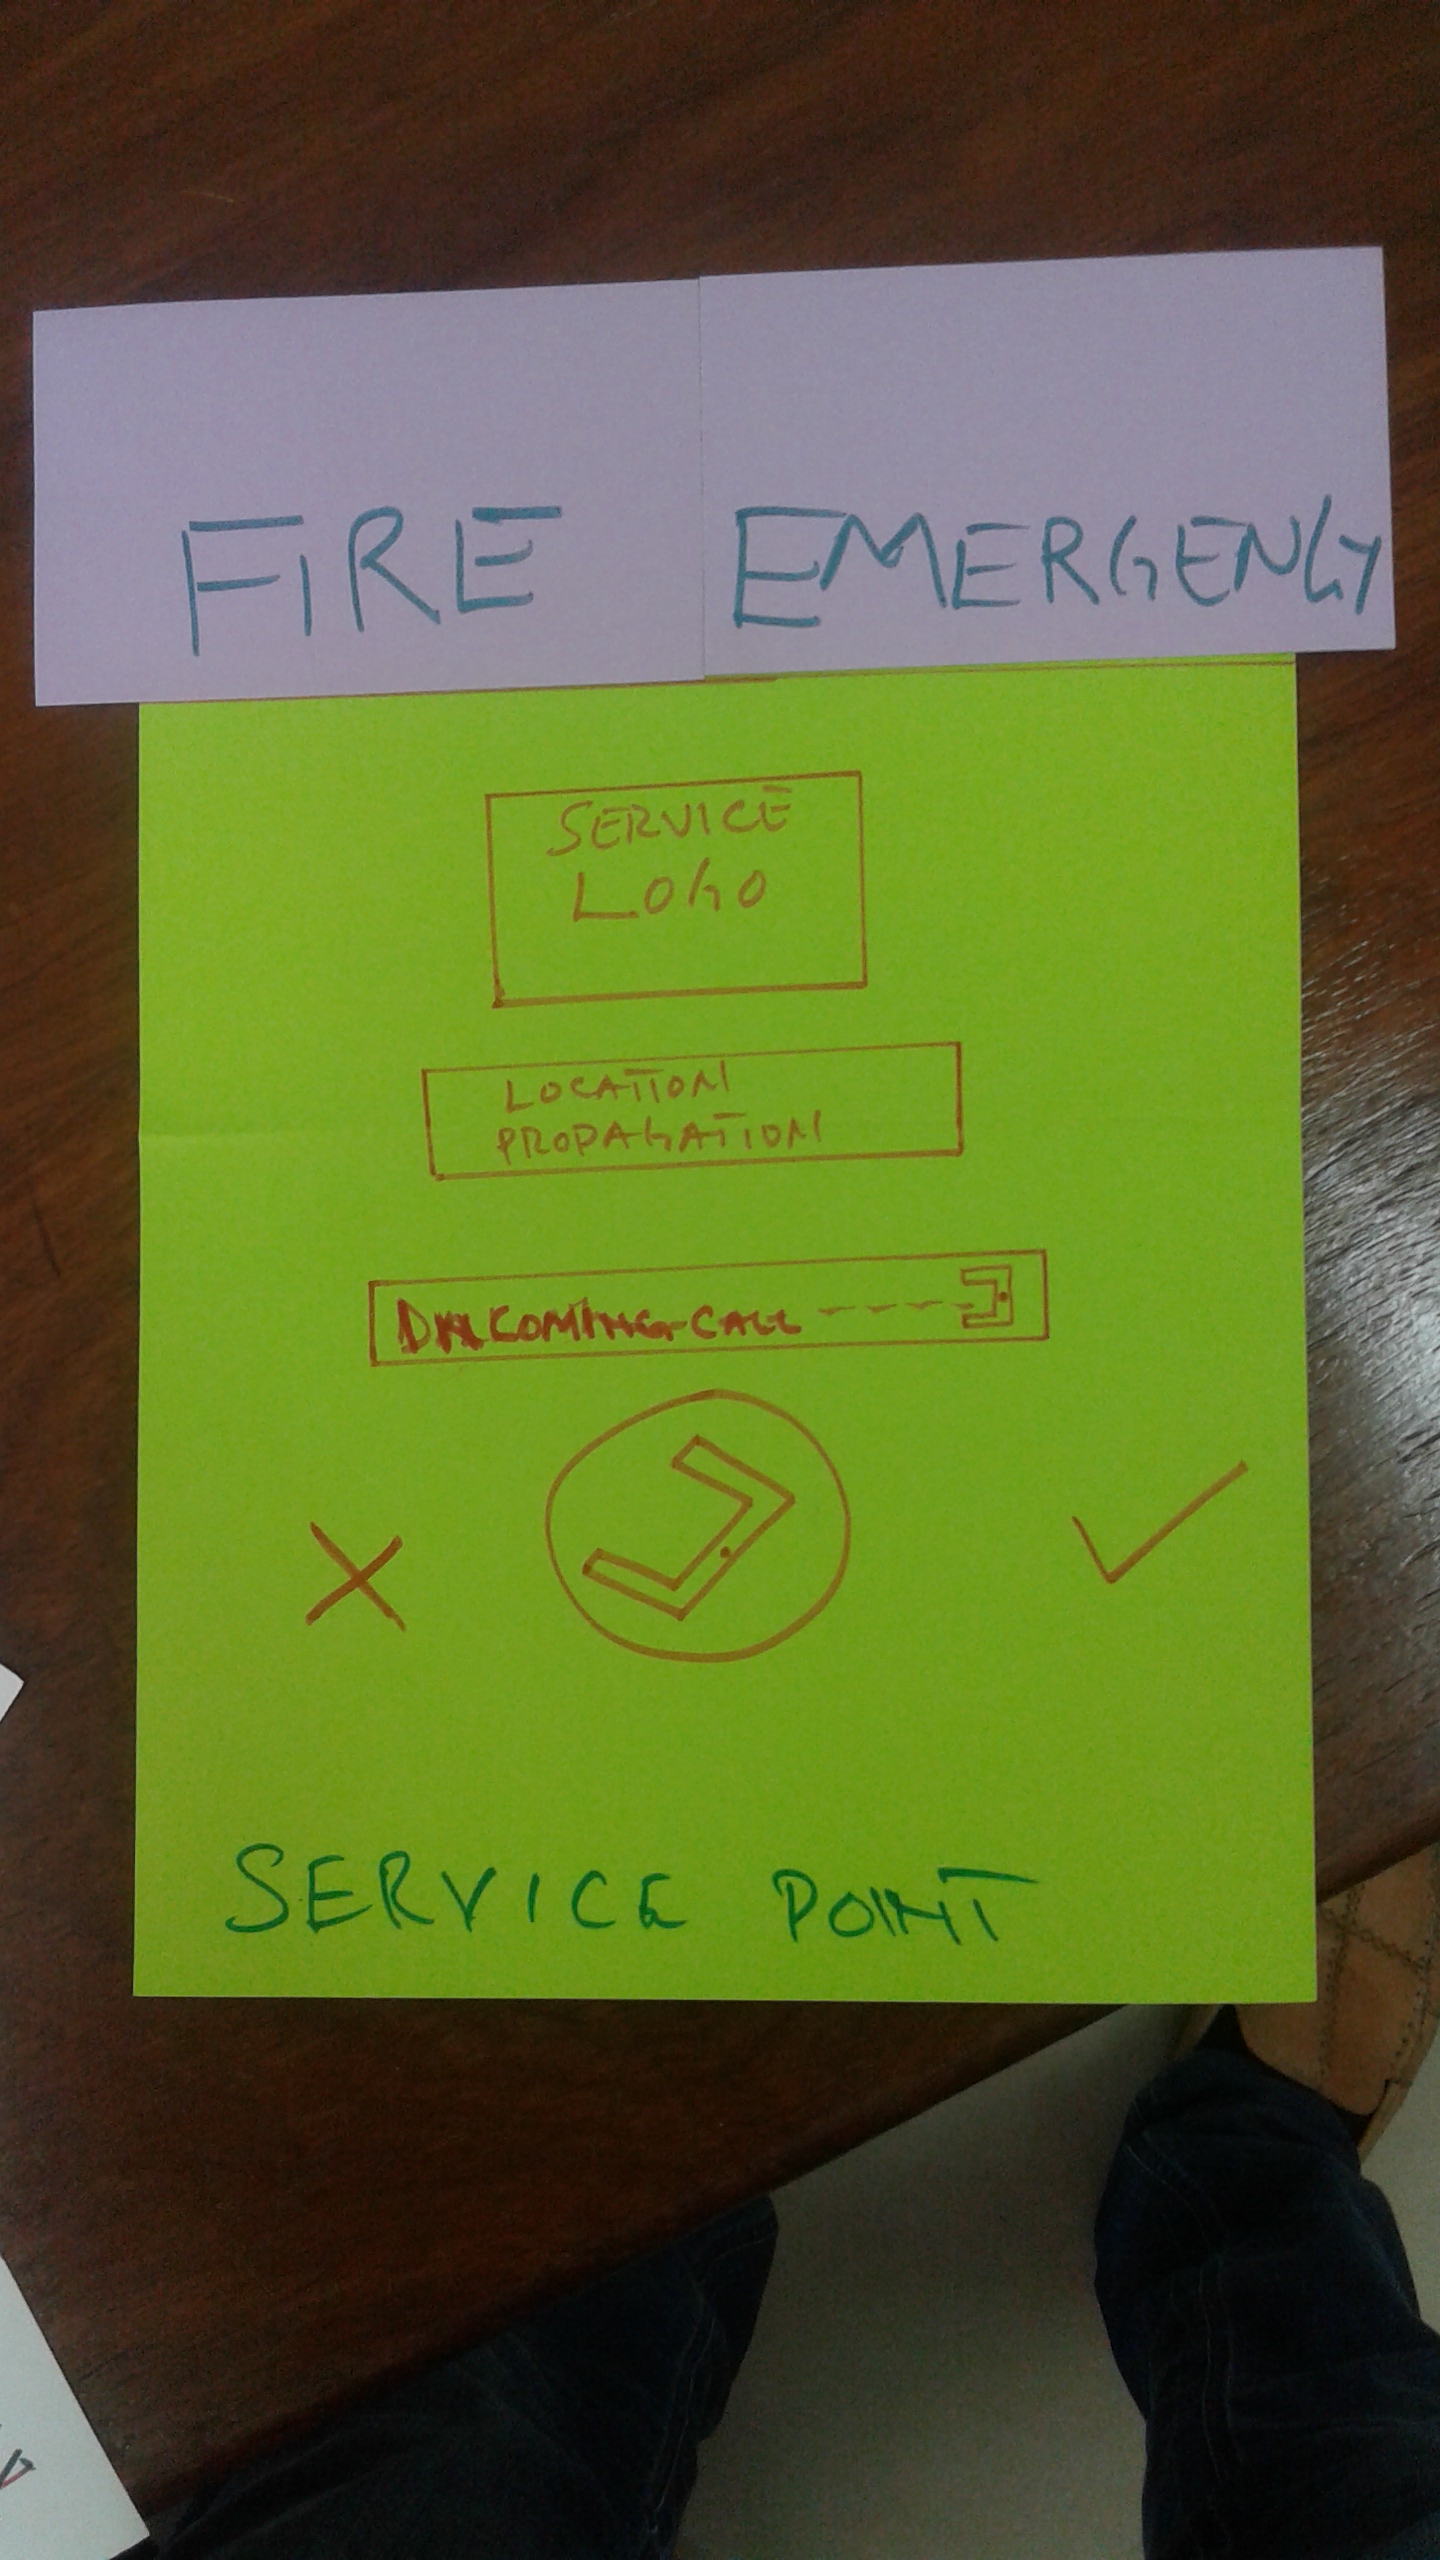 FIRE EMERGENCY
SERVICE
LOGO
LOCATION
PROPAGATION
COMING-CALL ----
SERVICE POINT